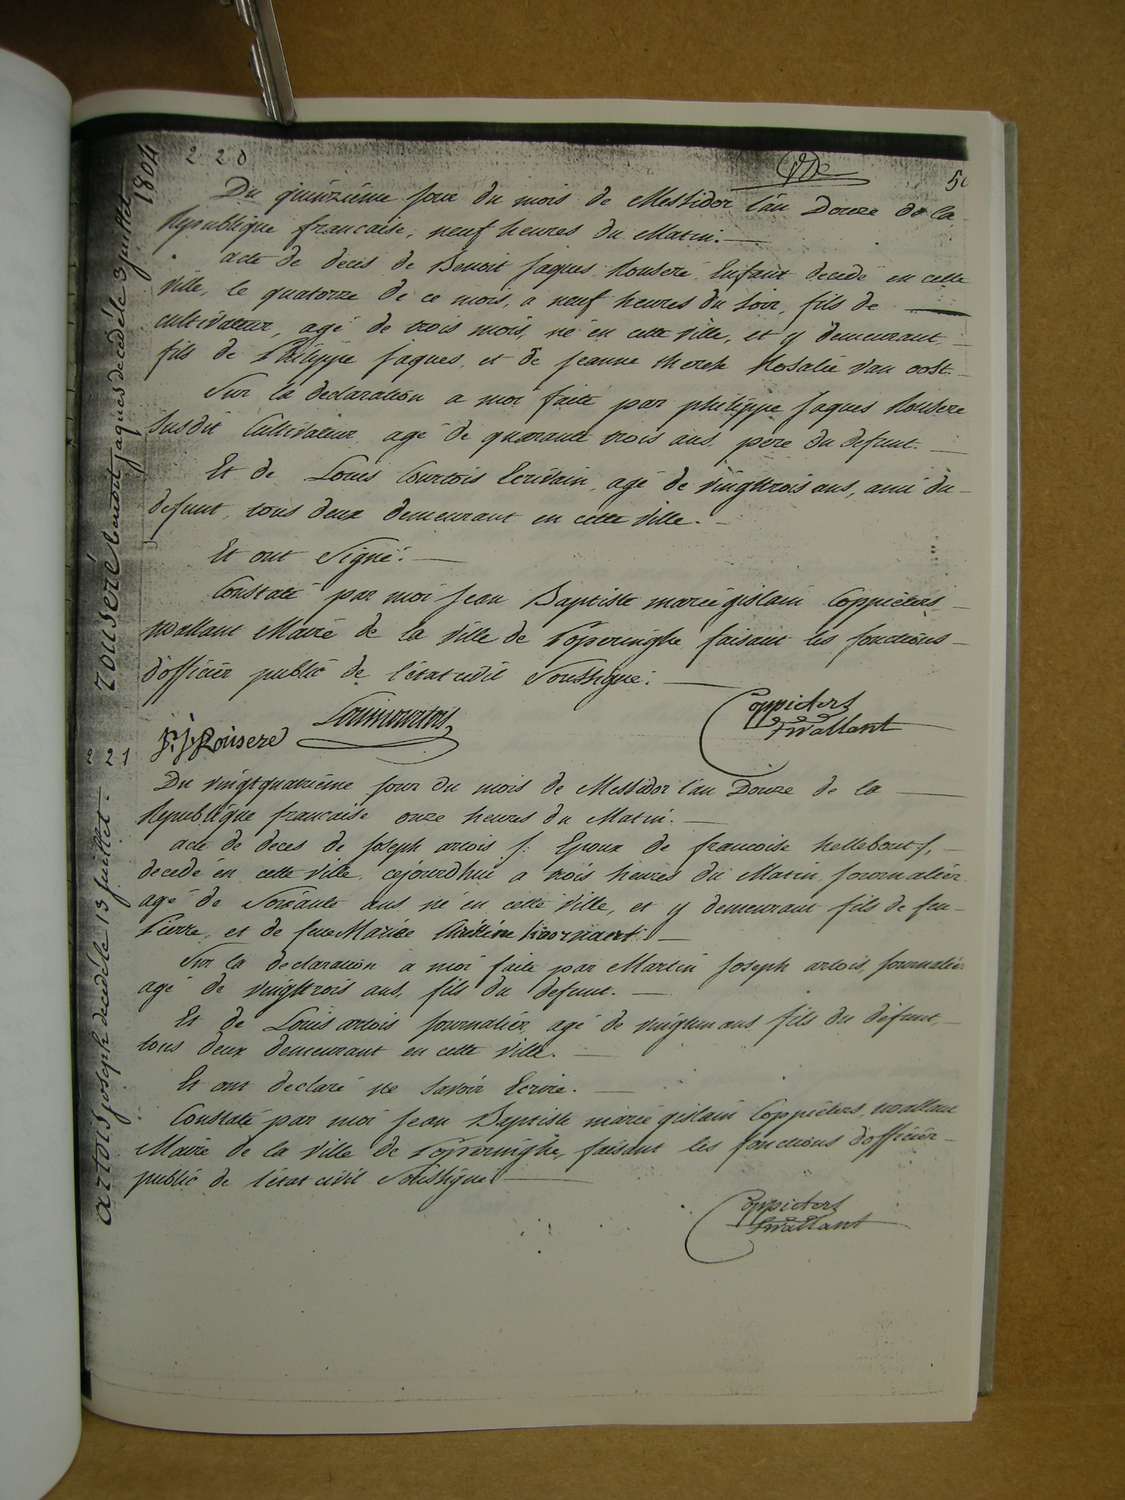 1804
220
50
Du quinzième jour du mois de Messidor l'an Douze de la
Republique francaise, neuf heures du Matin.
acte de decés de Benoit Jaques Rouseré Enfant decedé en cette
ville, le quatorze de ce mois, a neuf heures du soir, fils de
cultivateur, agé de trois mois, né en cette ville, et y demeurant
fils de Philippe Jaques, et de Jeanne therese Rosalie Van oost.
Sur la declaration a moi faite par philippe Jaques Rouseré
susdit Cultivateur agé de quarante trois ans, pere du defunt.
Et de Louis Courtois Ecrivain, agé de vingttrois ans, ami du
defunt, tous deux demeurant en cette ville.
Et ont signé.
Constaté par moi Jean Baptiste marie gislain Coppieters
wallant Maire de la ville de Poperinghe faisant les fonctions
d'officier public de l'état civil Soussigné.
P. J. Rousere
Louis Courtois
Coppieters
Twallant
rouseré benoit jaques decédé le 3 juillet
221
Du vingtquatrième jour du mois de Messidor l'an Douze de la
Republique francaise onze heures du Matin.
acte de deces de Joseph artois f. Epoux de francoise hellebout f.
decedé en cette ville cejourdhui a trois heures du Matin, journalier
agé de Soixante ans né en cette ville, et y demeurant fils de feu
Pierre, et de feue Marie Christine
Sur la declaration a moi faite par Martin Joseph artois, journalier
agé de vingttrois ans, fils du defunt.
Et de Louis artois journalier, agé de vingtun ans fils du defunt,
tous deux demeurant en cette ville.
Et ont declaré ne savoir Ecrire.
Constaté par moi Jean Baptiste marie gislain Coppieters, wallant
Maire de la ville de Poperinghe, faisant les fonctions d'officier
public de l'état civil Soussigné
Coppieters
Twallant
artois joseph decédé le 13 juillet